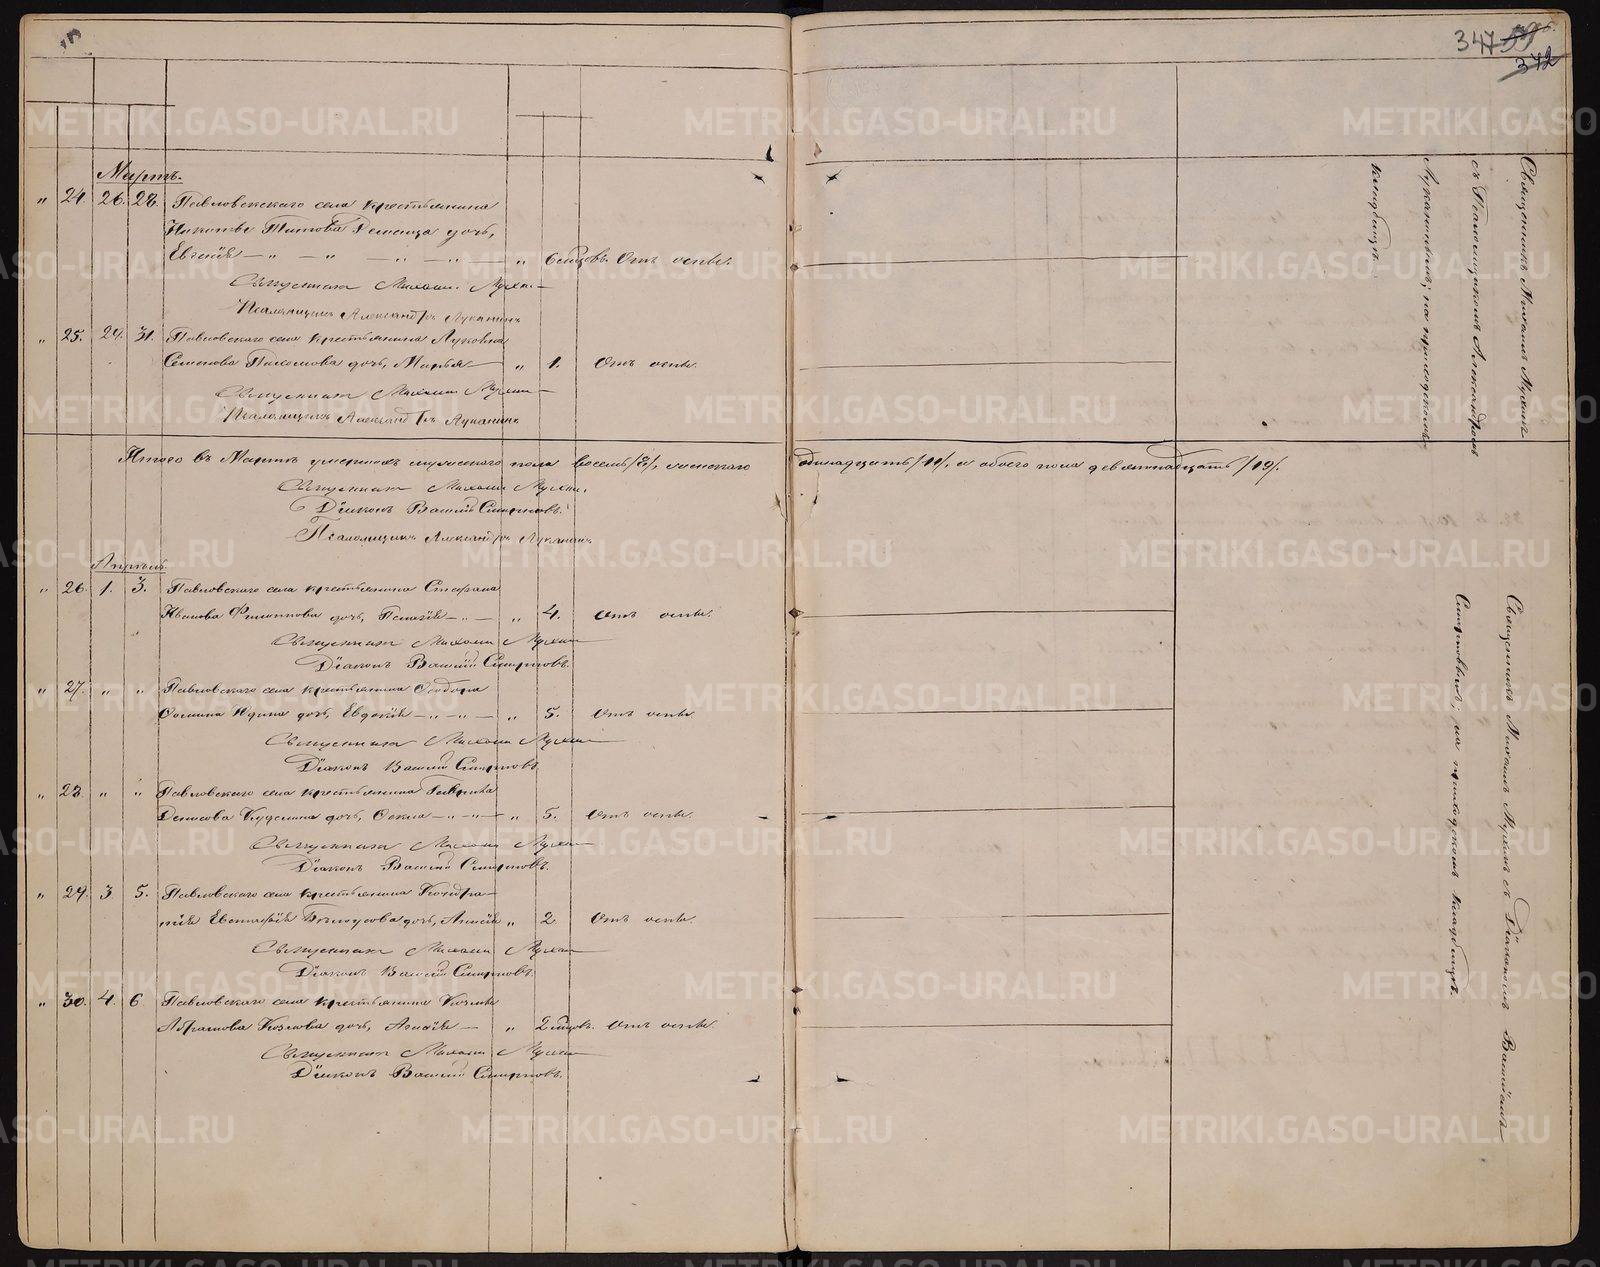 347
372
Мартъ.
" 24 26. 28. Павловскаго села крестьянина
Титова дочь,
Евгенія — " — " — " — " — " 6 мѣсцовъ. Отъ оспы.
Священникъ Михаилъ Мухинъ
Псаломщикъ Александръ Луканинъ
" 25. 29. 31. Павловскаго села крестьянина
Семенова Пахомова дочь, Марья — " 1. Отъ оспы.
Священникъ Михаилъ Мухинъ
Псаломщикъ Александръ Луканинъ
Итого въ Мартѣ умершихъ мужескаго пола восемь /8/, женскаго одинадцать /11/, а обоего пола девятнадцать /19/.
Священникъ Михаилъ Мухинъ.
Діаконъ Василій Смирновъ.
Псаломщикъ Александръ Луканинъ
Апрѣль
" 26. 1. 3. Павловскаго села крестьянина Стефана
Иванова Филиппова дочь, Пелагія — " — " 4. Отъ оспы.
Священникъ Михаилъ Мухинъ
Діаконъ Василій Смирновъ.
" 27. " " Павловскаго села крестьянина Ѳеодора
дочь, Евдокія — " — " — " 5. Отъ оспы.
Священникъ Михаилъ Мухинъ
Діаконъ Василій Смирновъ
" 28. " " Павловскаго села крестьянина Гавриила
Денисова дочь, Ѳекла — " — " — " 5. Отъ оспы.
Священникъ Михаилъ Мухинъ
Діаконъ Василій Смирновъ.
" 29. 3 5. Павловскаго села крестьянина Кондра-
тія Евстафіева Бѣлоусова дочь, Анисія " 2 Отъ оспы.
Священникъ Михаилъ Мухинъ
Діаконъ Василій Смирновъ.
" 30. 4. 6 Павловскаго села крестьянина Козьмы
Абрамова Козлова дочь, — " 2 мѣсцовъ. Отъ оспы.
Священникъ Михаилъ Мухинъ
Діаконъ Василій Смирновъ.
Священникъ Михаилъ Мухинъ
съ Псаломщикомъ Александромъ
Луканинымъ, на приходскомъ
кладбищѣ.
Священникъ Михаилъ Мухинъ съ Діакономъ Василіемъ
Смирновымъ, на приходскомъ кладбищѣ.
METRIKI.GASO-URAL.RU